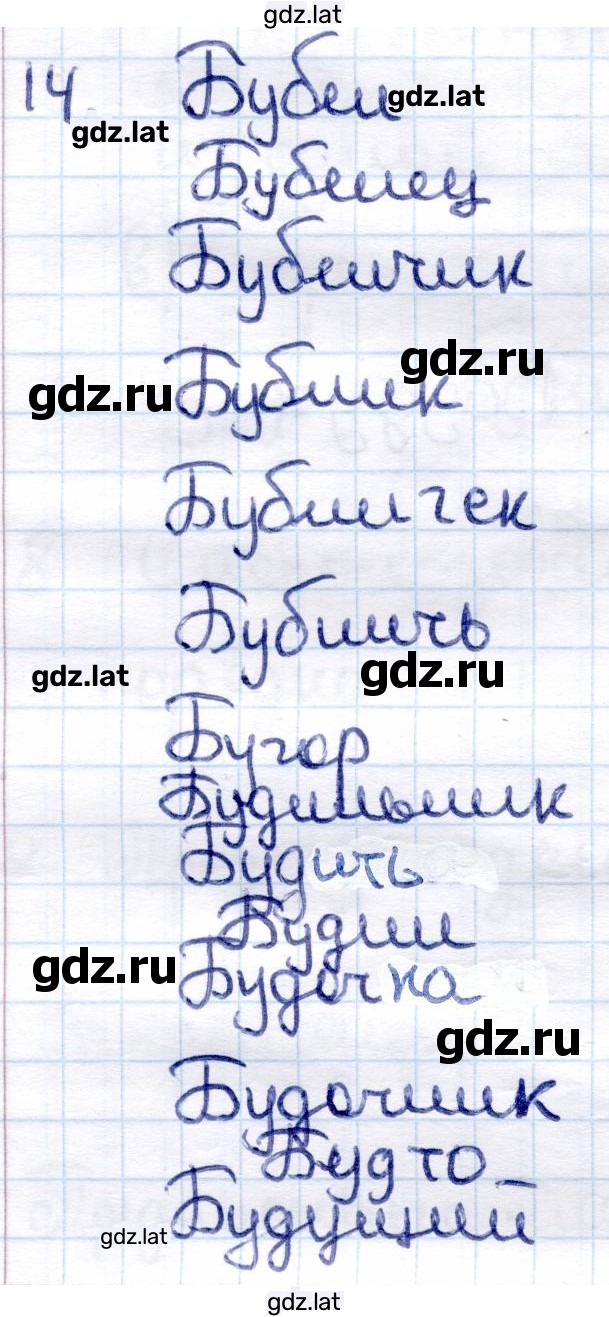 gdz.lat
14 Бубен gdz.lat
gdz.lat
Бубенец
Бубенчик
gdz.ru
gdz.ru Бублик
Бубличек
Бубнить
gdz.lat gdz.ru
Бугор
Будильник
Будить
Будни
gdz.ru Будочка
gdz.ru
Будочник
Будто_
Будущий
gdz.lat
gdz.lat